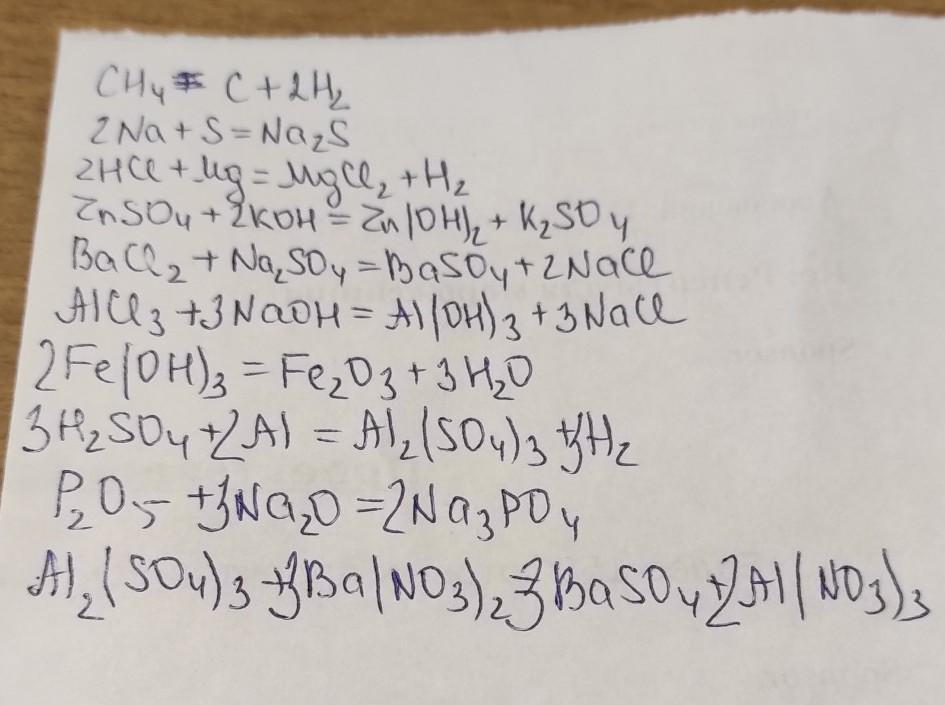 CH₄ = C + 2H₂
2Na + S = Na₂S
2HCl + Mg = MgCl₂ + H₂
ZnSO₄ + 2KOH = Zn(OH)₂ + K₂SO₄
BaCl₂ + Na₂SO₄ = BaSO₄ + 2NaCl
AlCl₃ + 3NaOH = Al(OH)₃ + 3NaCl
2Fe(OH)₃ = Fe₂O₃ + 3H₂O
3H₂SO₄ + 2Al = Al₂(SO₄)₃ + 3H₂
P₂O₅ + 3Na₂O = 2Na₃PO₄
Al₂(SO₄)₃ + 3Ba(NO₃)₂ = 3BaSO₄ + 2Al(NO₃)₃